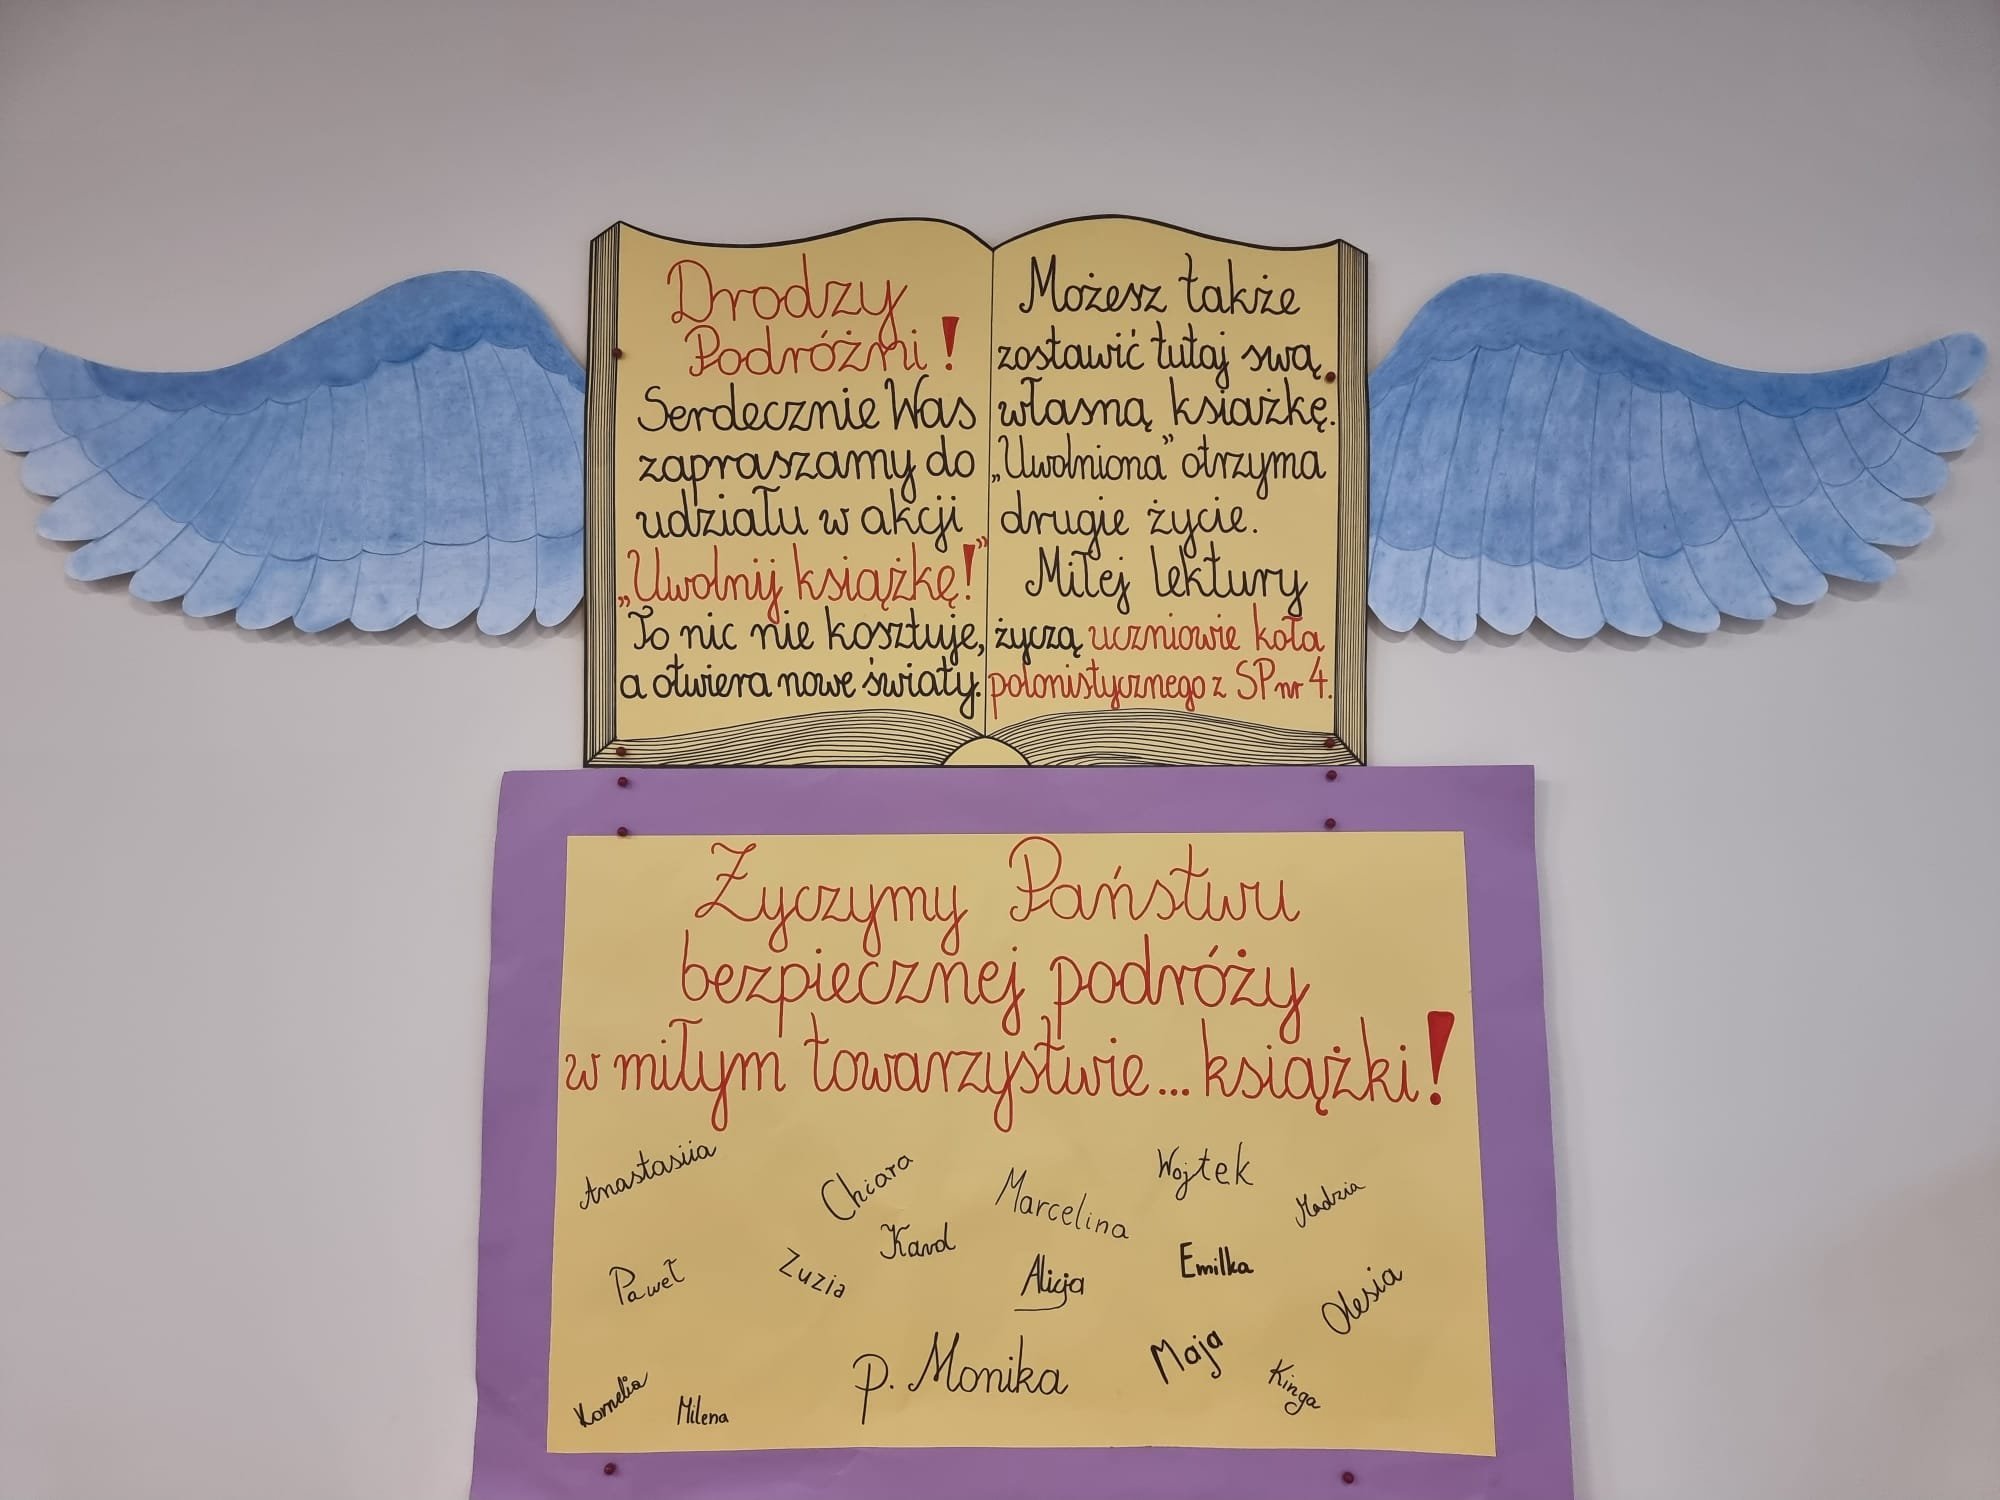 Drodzy
Podróżni!
Serdecznie Was
zapraszamy do
udziału w akcji
„Uwolnij książkę!”
To nic nie kosztuje,
a otwiera nowe światy.
Możesz także
zostawić tutaj swą
własną książkę.
„Uwolniona” otrzyma
drugie życie.
Miłej lektury
życzą uczniowie koła
polonistycznego z SP nr 4.
Życzymy Państwu
bezpiecznej podróży
w miłym towarzystwie... książki!
Anastasiia
Chiara
Marcelina
Wojtek
Madzia
Paweł
Zuzia
Karol
Alicja
Emilka
Olesia
Kornelia
Milena
p. Monika
Maja
Kinga